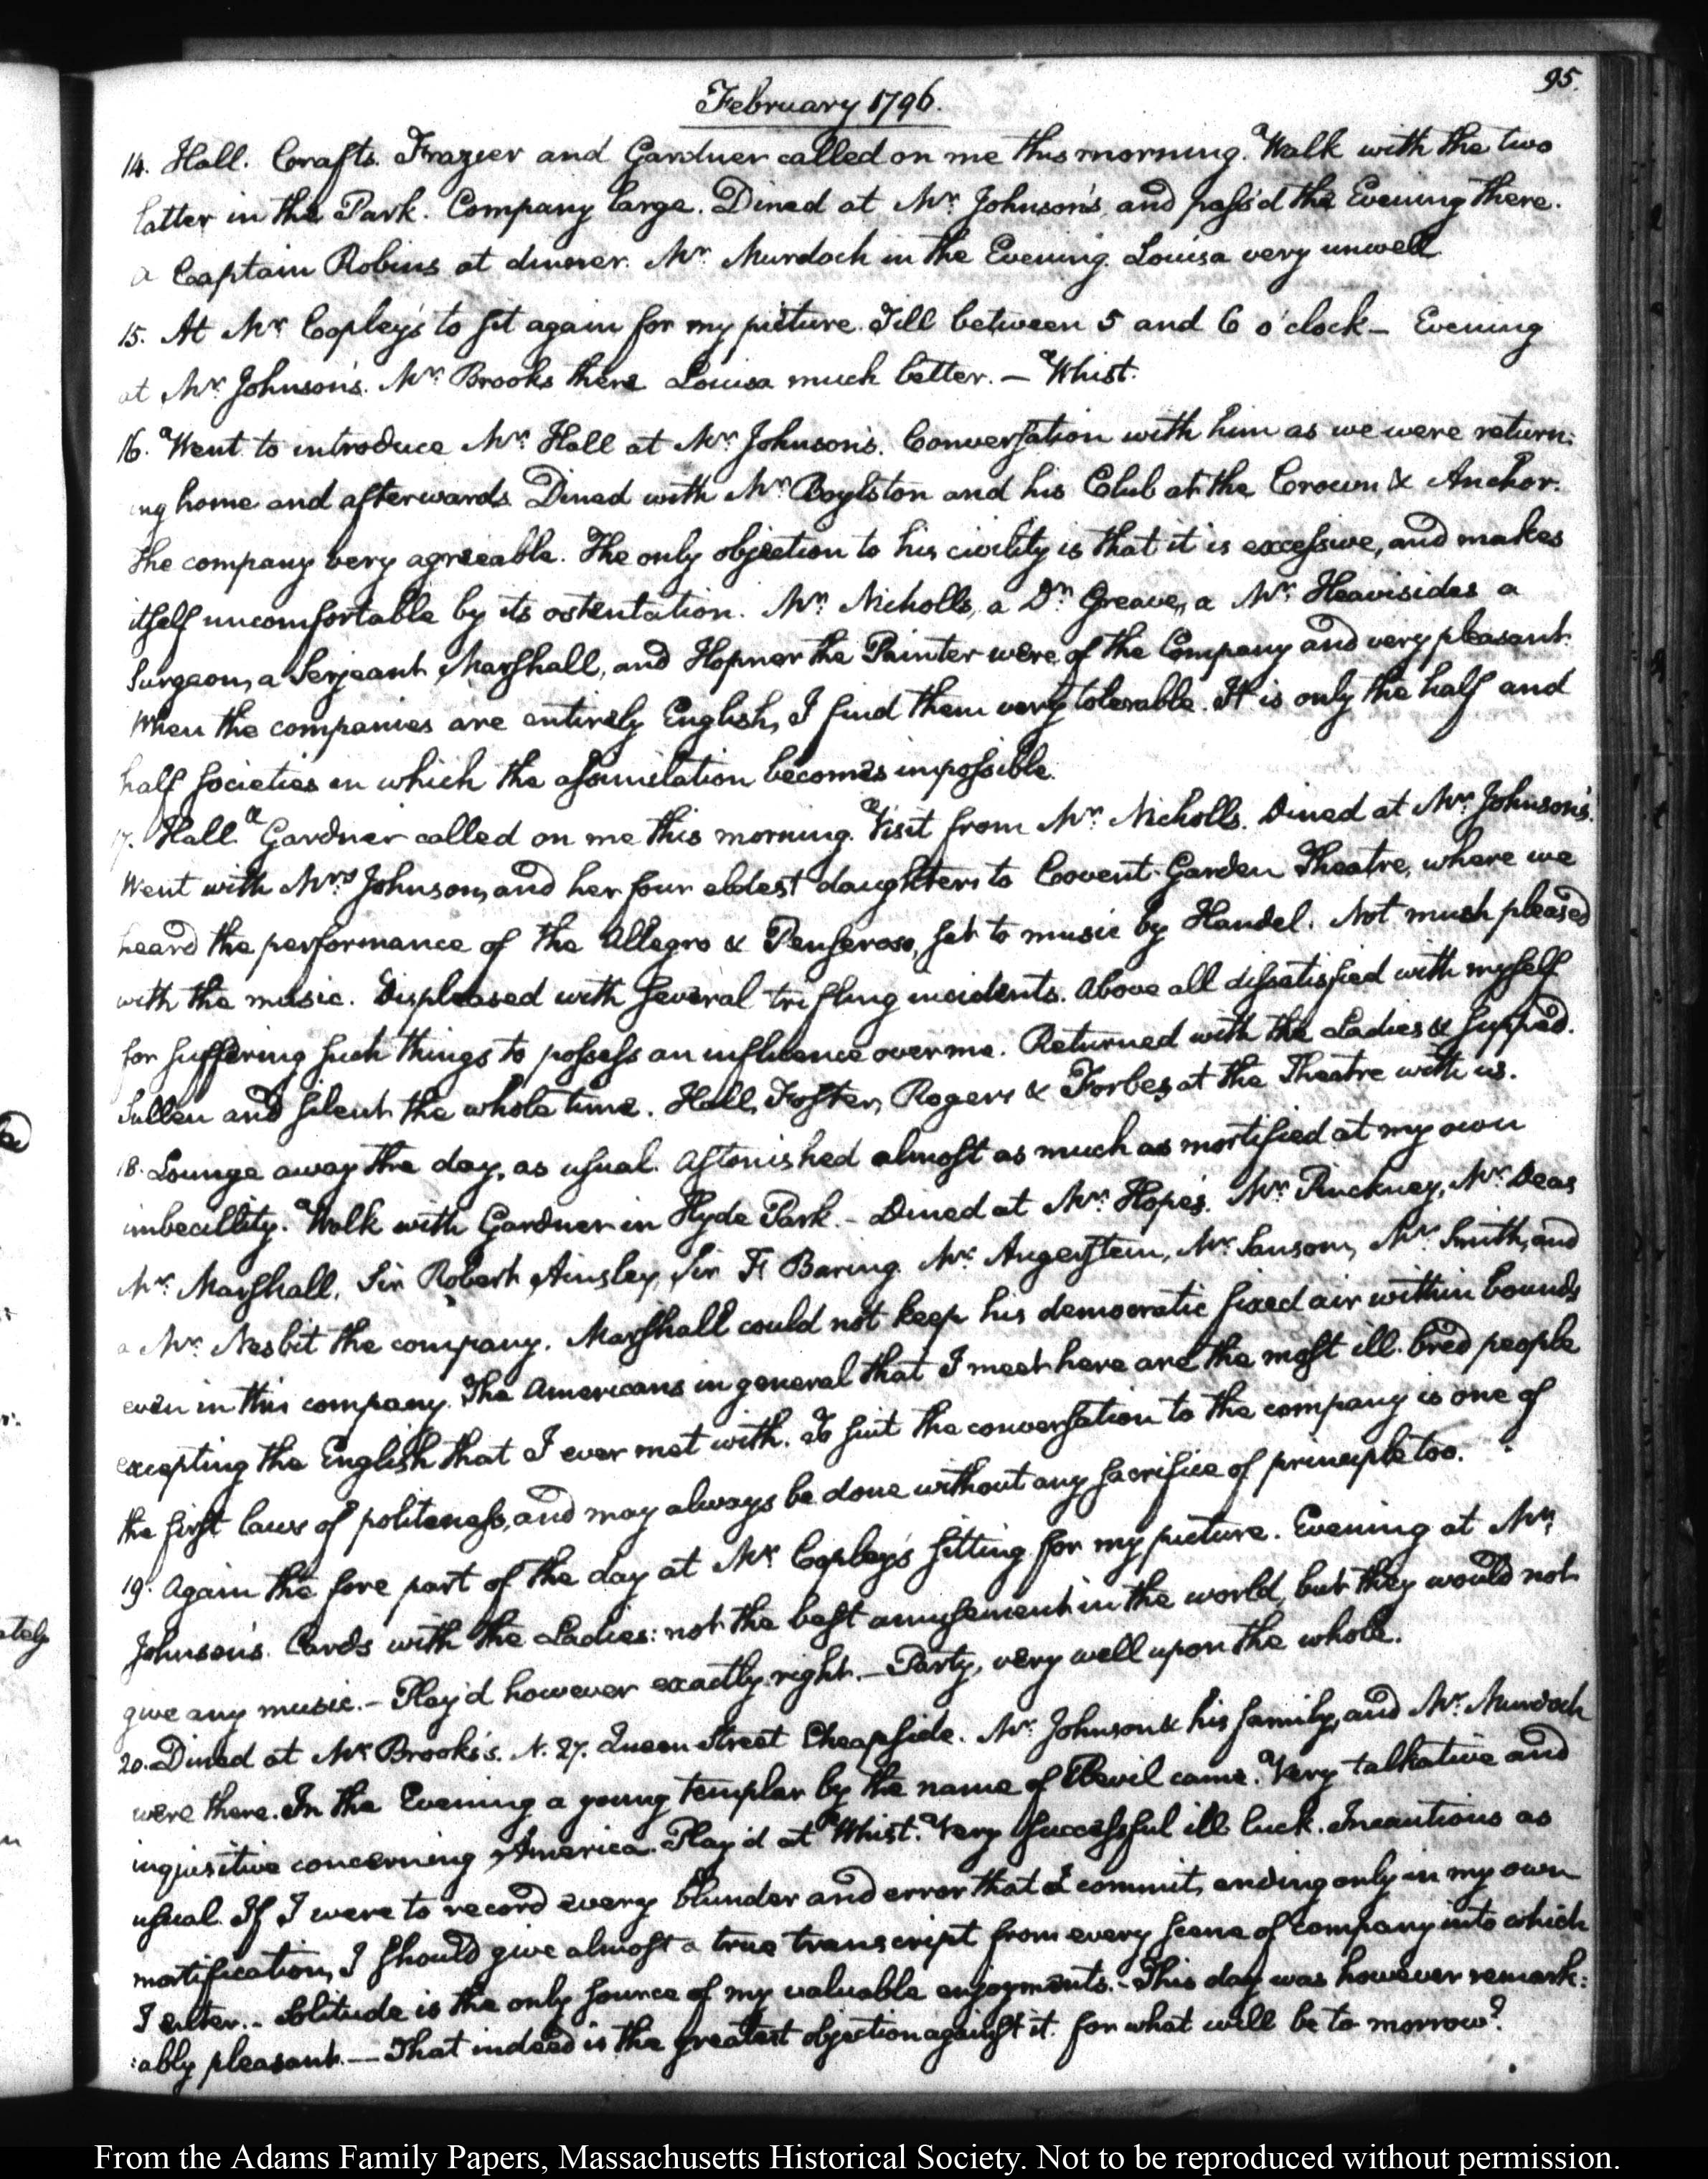 95.
February 1796.
14. Hall. Crafts. Frazier and Gardner called on me this morning. Walk with the two
latter in the Park. Company large. Dined at Mr. Johnson's, and pass'd the Evening there.
a Captain Robins at dinner. Mr. Murdoch in the Evening. Louisa very unwell.
15. At Mr. Copley's to sit again for my picture. Till between 5 and 6 o'clock — Evening
at Mr. Johnson's. Mr. Brooks there Louisa much better. — Whist.
16. Went to introduce Mr. Hall at Mr. Johnson's. Conversation with him as we were return:
ing home and afterwards. Dined with Mr. Boylston and his Club at the Crown & Anchor.
the company very agreeable. The only objection to his civility is that it is excessive, and makes
itself uncomfortable by its ostentation. Mr. Nicholls, a Dr. Greave, a Mr. Heavisides a
Surgeon, a Serjeant Marshall, and Hopner the Painter were of the Company and very pleasant.
When the companies are entirely English, I find them very tolerable. It is only the half and
half societies in which the assimilation becomes impossible.
17. Hall. Gardner called on me this morning. Visit from Mr. Nicholls. Dined at Mr. Johnson's.
Went with Mrs. Johnson, and her four eldest daughters to Covent-Garden Theatre, where we
heard the performance of the Allegro & Penseroso, set to music by Handel. Not much pleased
with the music. Displeased with several trifling incidents. Above all dissatisfied with myself
for suffering such things to possess an influence over me. Returned with the Ladies & supped.
Sullen and silent the whole time. Hall, Foster, Rogers & Forbes at the Theatre with us.
18. Lounge away the day, as usual. Astonished almost as much as mortified at my own
imbecillity. Walk with Gardner in Hyde Park. — Dined at Mr. Hope's. Mr. Pinckney, Mr. Deas
Mr. Marshall, Sir Robert Ainsley, Sir F. Baring. Mr. Angerstein, Mr. Sansom, Mr. Smith, and
a Mr. Nesbit the company. Marshall could not keep his democratic fixed air within bounds
even in this company. The Americans in general that I meet here are the most ill-bred people
excepting the English that I ever met with. To suit the conversation to the company is one of
the first laws of politeness, and may always be done without any sacrifice of principle too.
19. Again the fore part of the day at Mr. Copley's sitting for my picture. Evening at Mr.
Johnson's. Cards with the Ladies: not the best amusement in the world, but they would not
give any music. — Play'd however exactly right. — Party, very well upon the whole.
20. Dined at Mr. Brooks's. N. 27. Queen Street Cheapside. Mr. Johnson & his family, and Mr. Murdoch
were there. In the Evening a young templar by the name of came. Very talkative and
inquisitive concerning America. Play'd at Whist. Very successful ill luck. Incautious as
usual. If I were to record every blunder and error that I commit, ending only in my own
mortification, I should give almost a true transcript from every scene of company into which
I enter. — Solitude is the only source of my valuable enjoyments. — This day was however remark:
:ably pleasant. — That indeed is the greatest objection against it. for what will be to morrow?
From the Adams Family Papers, Massachusetts Historical Society. Not to be reproduced without permission.